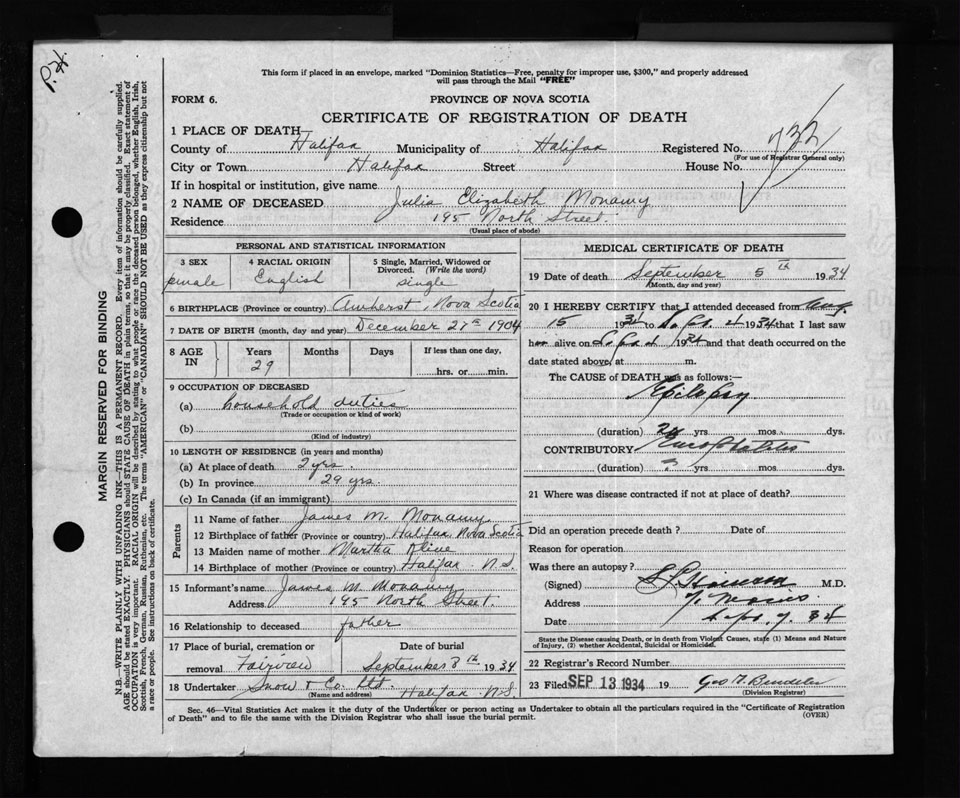 P.H.
This form if placed in an envelope, marked "Dominion Statistics—Free, penalty for improper use, $300," and properly addressed
will pass through the Mail "FREE"
FORM 6.
PROVINCE OF NOVA SCOTIA
CERTIFICATE OF REGISTRATION OF DEATH
1 PLACE OF DEATH—
County of Halifax Municipality of Halifax Registered No. 732
(For use of Registrar General only)
City or Town Halifax Street House No.
If in hospital or institution, give name
2 NAME OF DECEASED Julia Elizabeth Monamy
Residence 195 North Street.
(Usual place of abode)
PERSONAL AND STATISTICAL INFORMATION
3 SEX
female
4 RACIAL ORIGIN
English
5 Single, Married, Widowed or
Divorced. (Write the word)
single
6 BIRTHPLACE (Province or country) Amherst, Nova Scotia
7 DATE OF BIRTH (month, day and year) December 27th 1904
8 AGE
IN
Years
29
Months
Days
If less than one day,
hrs. or min.
9 OCCUPATION OF DECEASED
(a) household duties
(Trade or occupation or kind of work)
(b)
(Kind of industry)
10 LENGTH OF RESIDENCE (in years and months)
(a) At place of death 2 yrs.
(b) In province 29 yrs.
(c) In Canada (if an immigrant)
Parents
11 Name of father James M. Monamy
12 Birthplace of father (Province or country) Halifax Nova Scotia
13 Maiden name of mother Martha
14 Birthplace of mother (Province or country) Halifax N.S.
15 Informant's name James M. Monamy
Address 195 North Street.
16 Relationship to deceased father
17 Place of burial, cremation or
removal Fairview
Date of burial
September 8th 1934
18 Undertaker Snow & Co. Ltd Halifax N.S.
(Name and address)
MEDICAL CERTIFICATE OF DEATH
19 Date of death September 5th 1934
(Month, day and year)
20 I HEREBY CERTIFY that I attended deceased from Aug
15 1934 to Sept 4 1934 that I last saw
her alive on Sept 4 1934 and that death occurred on the
date stated above, at m.
The CAUSE of DEATH was as follows:—
Epilepsy
(duration) yrs. mos. dys.
CONTRIBUTORY
(duration) ? yrs. mos. dys.
21 Where was disease contracted if not at place of death?
Did an operation precede death? Date of
Reason for operation
Was there an autopsy?
(Signed) M.D.
Address
Date Sept. 7. 34
State the Disease causing Death, or in death from Violent Causes, state (1) Means and Nature
of Injury, (2) whether Accidental, Suicidal or Homicidal.
22 Registrar's Record Number
23 Filed SEP 13 1934 19
(Division Registrar)
Sec. 46—Vital Statistics Act makes it the duty of the Undertaker or person acting as Undertaker to obtain all the particulars required in the "Certificate of Registration
of Death" and to file the same with the Division Registrar who shall issue the burial permit. (OVER)
MARGIN RESERVED FOR BINDING
N.B.—WRITE PLAINLY WITH UNFADING INK—THIS IS A PERMANENT RECORD. Every item of information should be carefully supplied.
AGE should be stated EXACTLY. PHYSICIANS should STATE CAUSE OF DEATH in plain terms, so that it may be properly classified. Exact statement of
OCCUPATION is very important. RACIAL ORIGIN will be described by stating to what people or race the deceased person belonged, whether English, Irish,
Scottish, French, German, Russian, Ruthenian, etc. The terms "AMERICAN" or "CANADIAN" SHOULD NOT BE USED as they express citizenship but not
a race or people. See instructions on back of certificate.